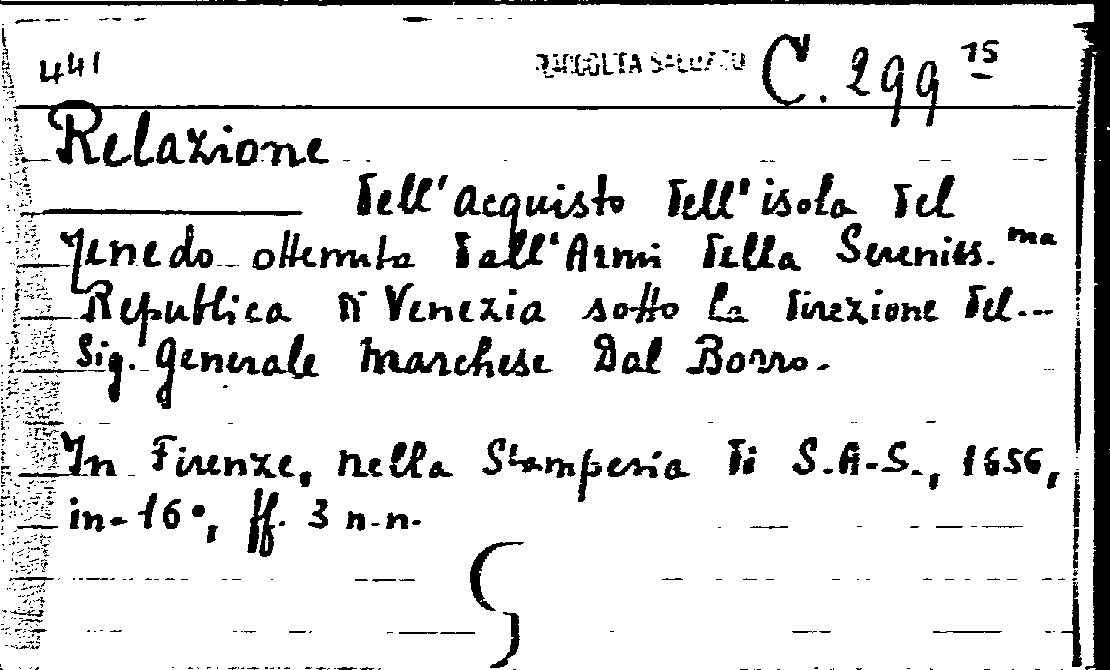 441 RACCOLTA SALUZZO C. 299 15
Relazione
dell'acquisto dell'isola del
Tenedo ottenuta dall'Armi della Sereniss.ma
Republica di Venezia sotto la direzione del...
Sig. Generale Marchese Dal Borro.
In Firenze, nella Stamperia di S.A.S., 1656,
in-16°, ff. 3 n.n.